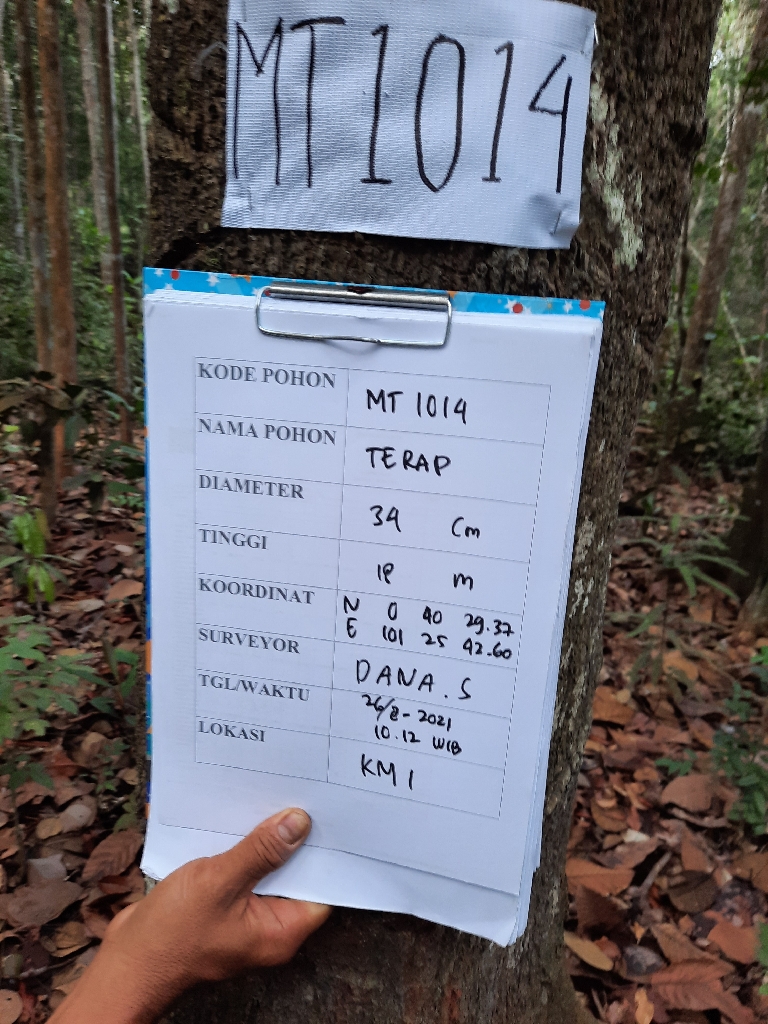 MT1014
KODE POHON MT 1014
NAMA POHON TERAP
DIAMETER 34 Cm
TINGGI m
KOORDINAT N 0 40 29.37
E 101 25 42.60
SURVEYOR DANA.S
TGL/WAKTU 26/8-2021
10.12 WIB
LOKASI KM 1